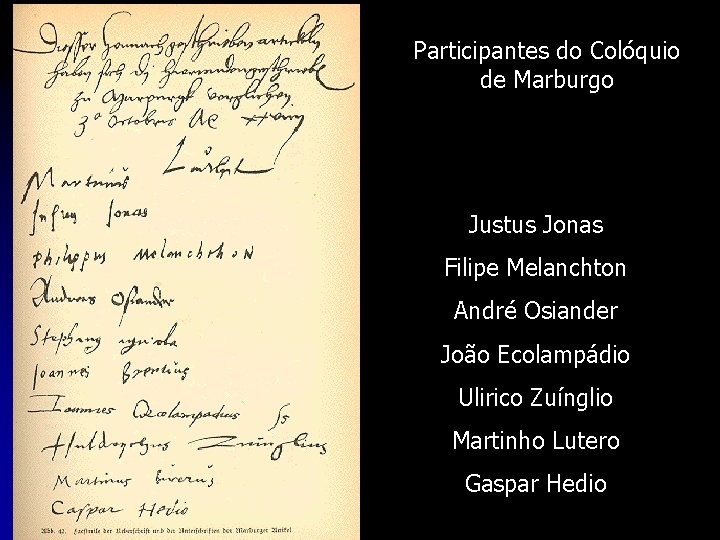 Disser hernach geschriben artickeln
haben sich die hierunden geschriebene
zu Marpurgk verglichen
3ª Octobris
Martinus Luther
Justus Jonas
Philippus Melanchthon
Andreas Osiander
Stephanus Agricola
Joannes Brentius
Ioannes Oecolampadius ss
Huldrychus Zuinglius
Martinus Bucerus
Caspar Hedio
Abb. 42. Facsimile der Ueberschrift und der Unterschriften der Marburger Artikel.
Participantes do Colóquio
de Marburgo
Justus Jonas
Filipe Melanchton
André Osiander
João Ecolampádio
Ulirico Zuínglio
Martinho Lutero
Gaspar Hedio